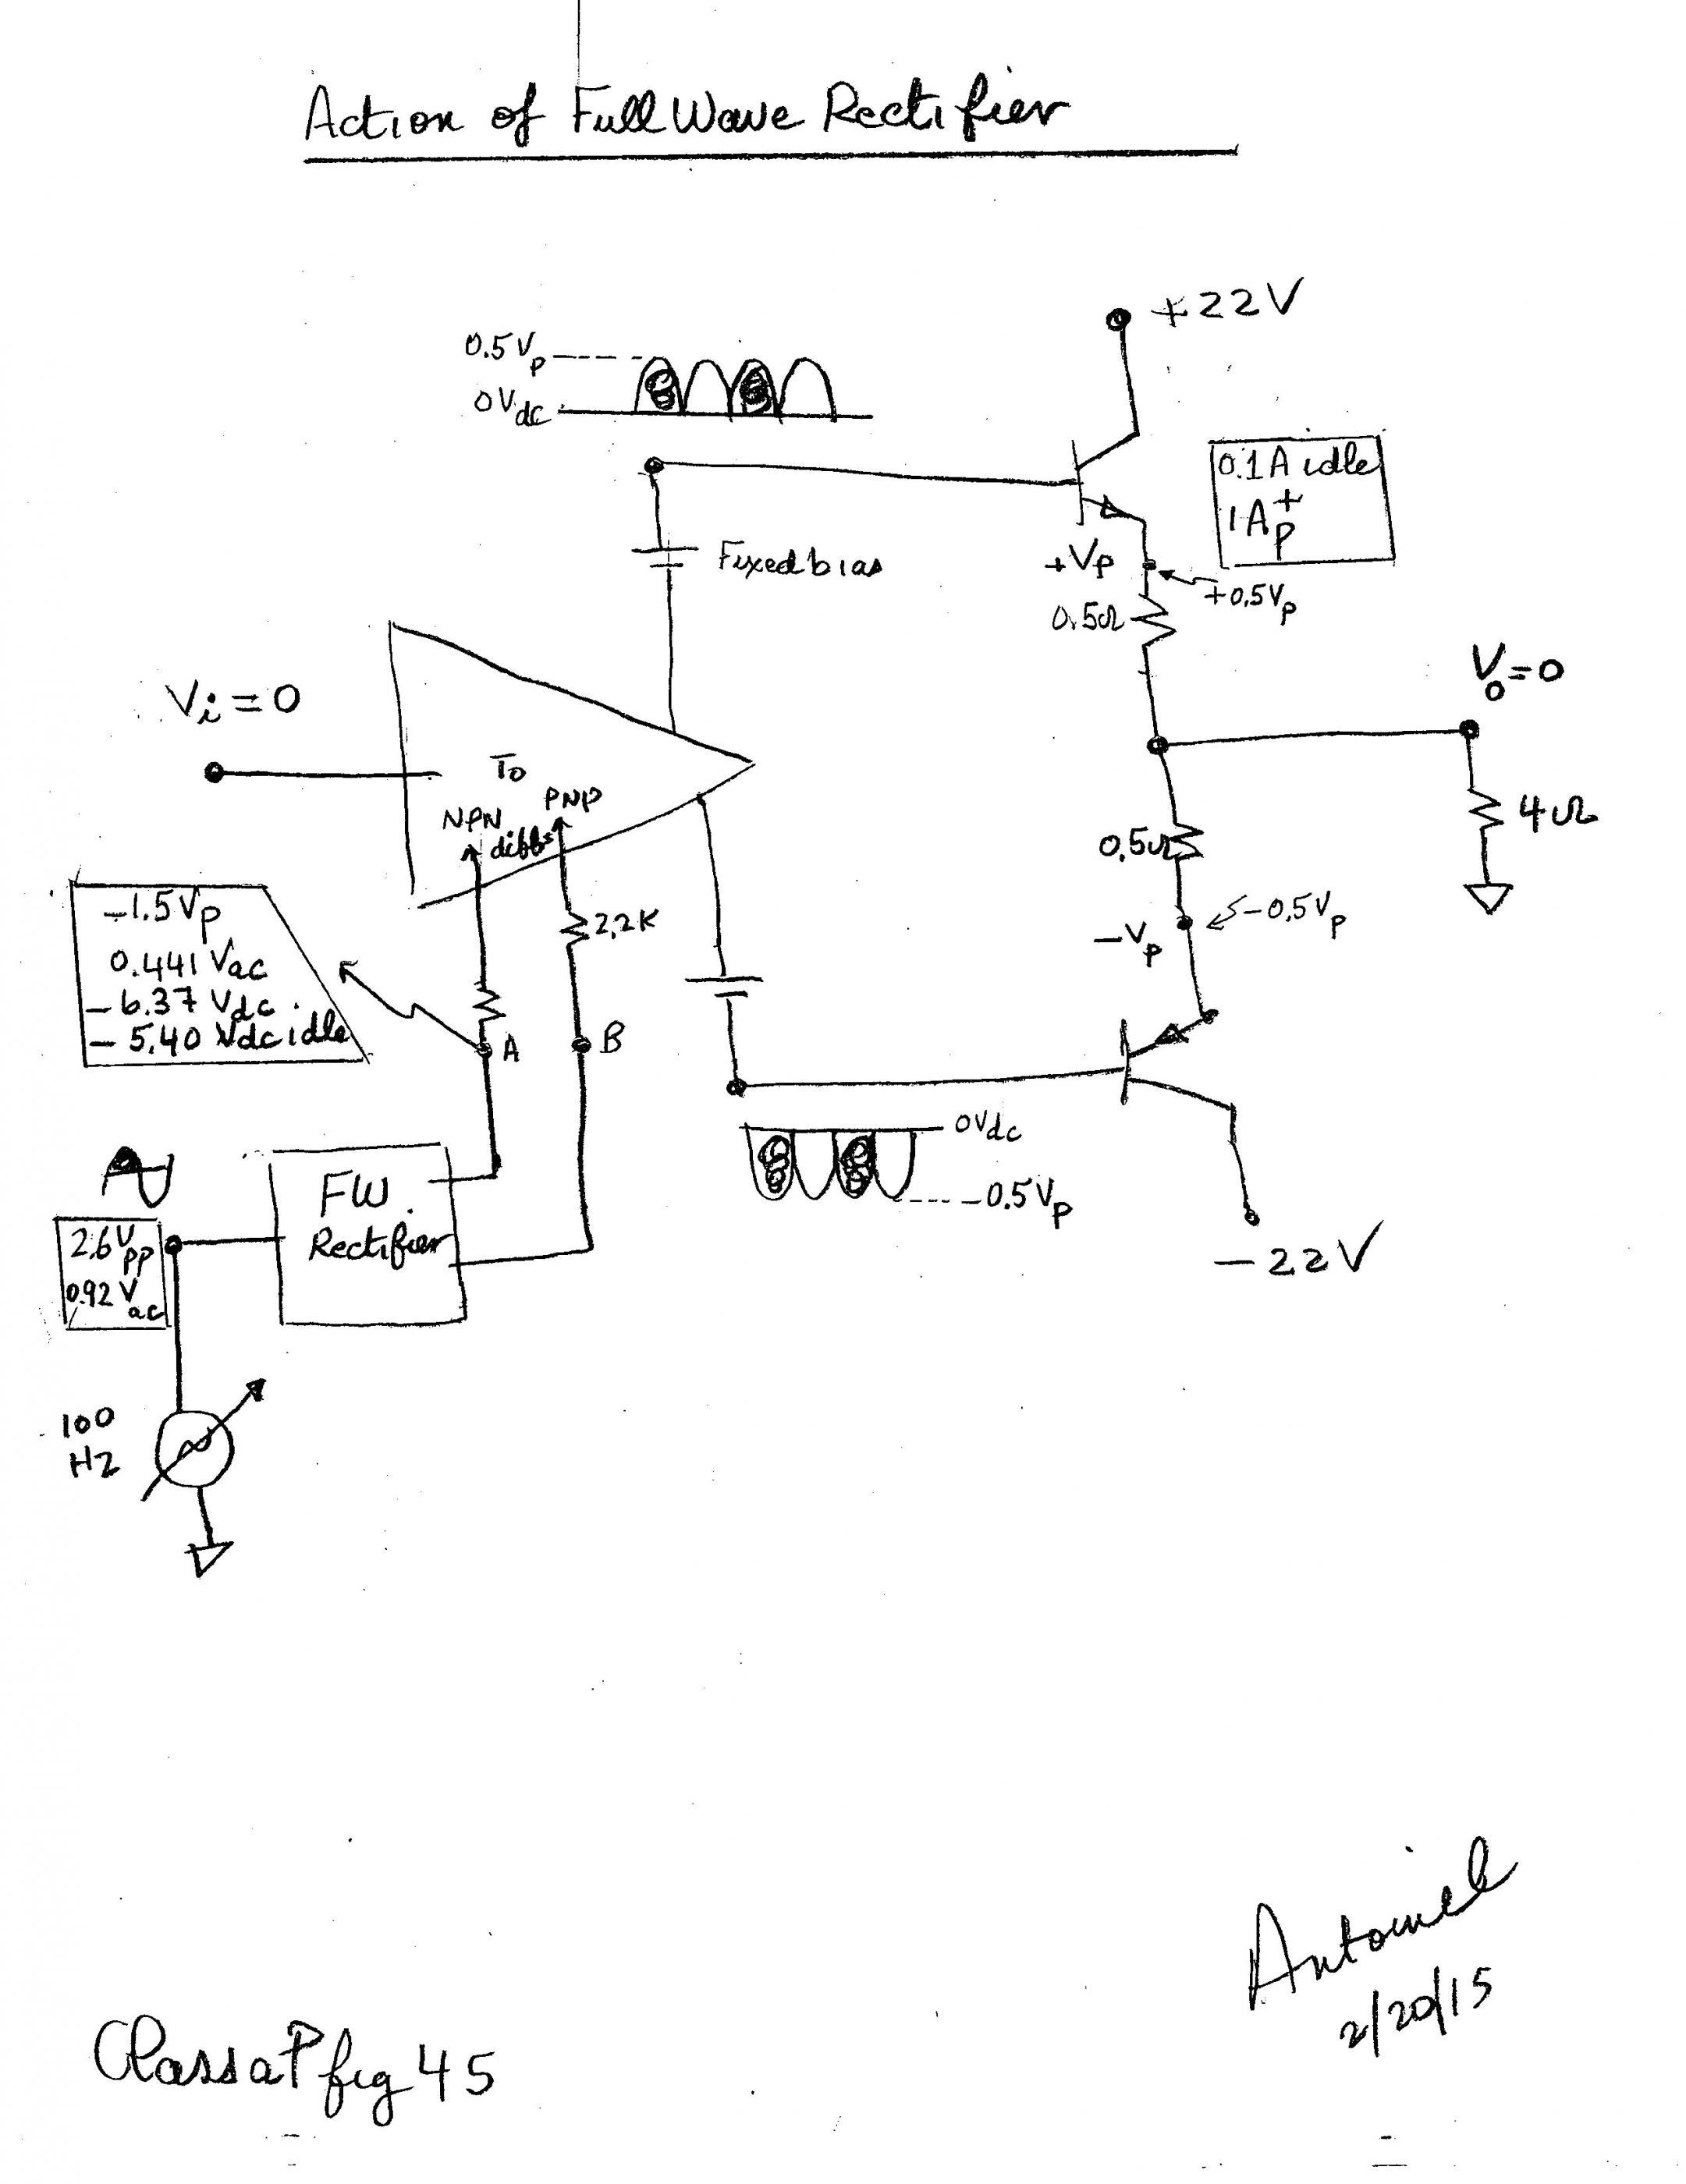 Action of Full Wave Rectifier
+22V
0.5Vp
0Vdc
0.1A idle
1Ap+
Fixed bias
+Vp
+0.5Vp
0.5Ω
Vi=0
Vo=0
To
NPN
PNP
diffs
4Ω
0.5Ω
-0.5Vp
-Vp
-1.5Vp
0.441 Vac
-6.37 Vdc
-5.40 Vdc idle
2.2K
A
B
0Vdc
-0.5Vp
FW
Rectifier
2.6Vpp
0.92 Vac
-22V
100
Hz
Antoinel
2/20/15
ClassaP fig 45